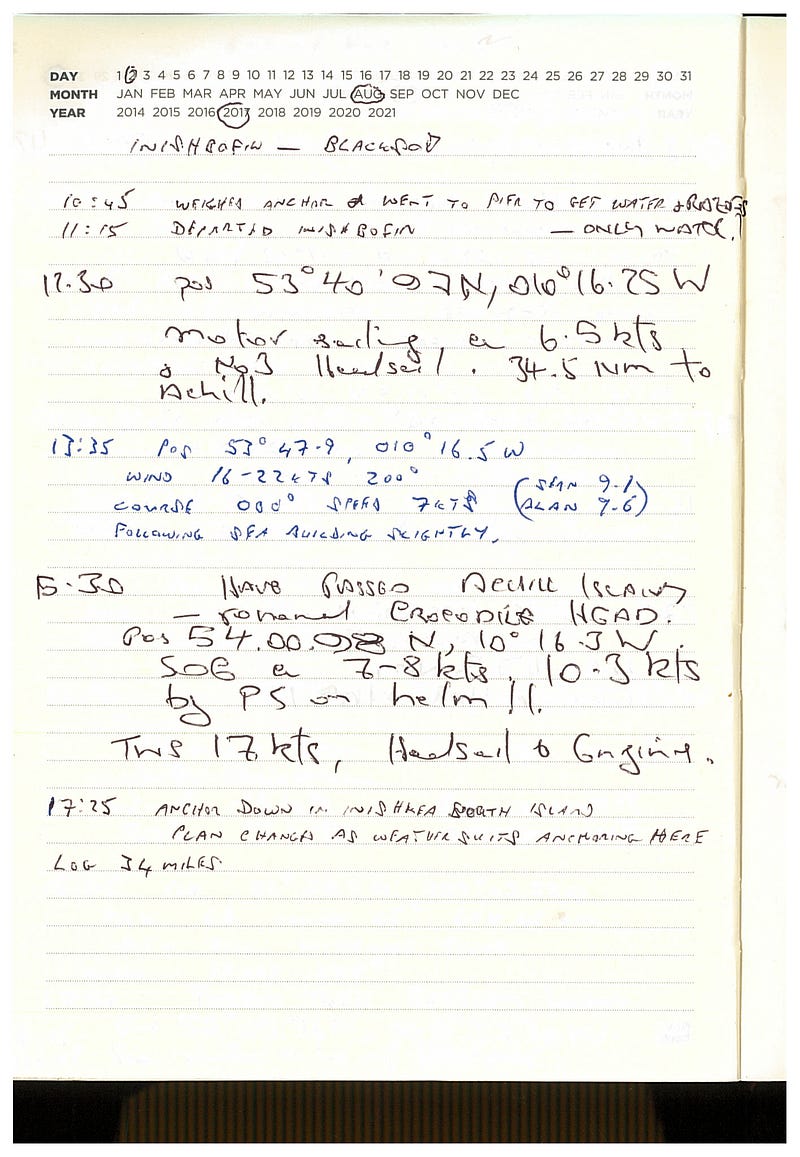 DAY 1 2 3 4 5 6 7 8 9 10 11 12 13 14 15 16 17 18 19 20 21 22 23 24 25 26 27 28 29 30 31
MONTH JAN FEB MAR APR MAY JUN JUL AUG SEP OCT NOV DEC
YEAR 2014 2015 2016 2017 2018 2019 2020 2021
INISHBOFIN — BLACKSOD
10:45 WEIGHED ANCHOR & WENT TO PIER TO GET WATER +
11:15 DEPARTED INISHBOFIN — ONLY WATER!
12.30 pos 53° 40' 07N, 010° 16.25 W
motor sailing, @ 6.5 kts
& No3 Headsail. 34.5 Nm to
Achill.
13:35 POS 53° 47.9, 010° 16.5 W
WIND 16-22KTS 200°
COURSE 000° SPEED 7KTS (SEAN 9.1
ALAN 9.6)
FOLLOWING SEA BUILDING SLIGHTLY.
15.30 HAVE PASSED ACHILL ISLAND
— renamed CROCODILE HEAD.
Pos 54.00. N, 10° 16.3 W.
SOG @ 7-8 kts. 10.3 kts
by PS on helm !!.
TWS 17 kts, Headsail & Engine.
17:25 ANCHOR DOWN IN INISHKEA ISLAND
PLAN CHANGED AS WEATHER SUITS ANCHORING HERE
LOG 34 MILES